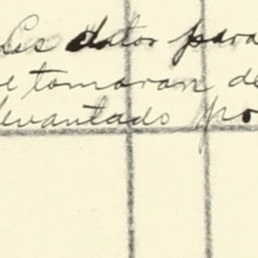 Los datos para
e tomaron de
levantado po